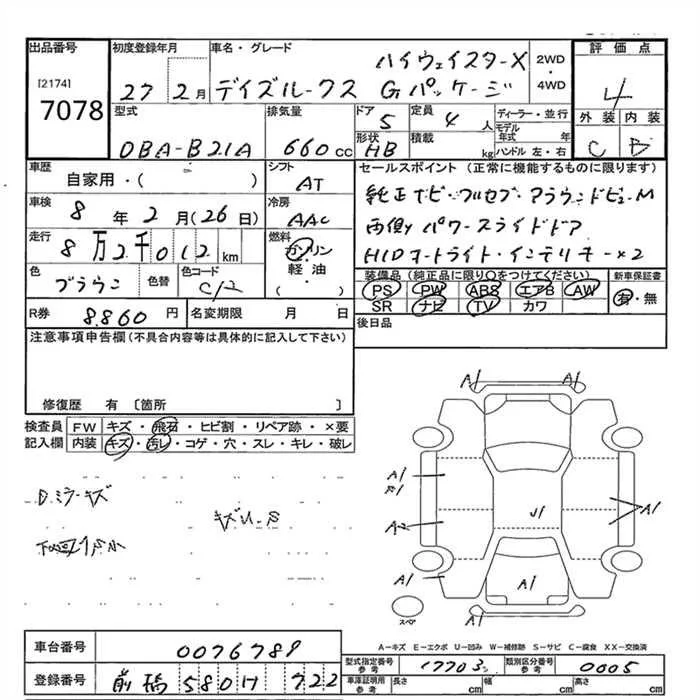 出品番号 初度登録年月 車名・グレード 評価点
[2174]
7078
27 2月
ハイウェイスターX
デイズルークス Gパッケージ
2WD・4WD
4
外装 内装
C B
型式 排気量 ドア 定員 ディーラー・並行
DBA-B21A 660cc 5 4人
モデル年式 年
形状 積載 ハンドル 左・右
HB kg
車歴 シフト セールスポイント (正常に機能するものに限ります)
自家用・( ) AT
純正ナビ・フルセブ・アラウンドビューM
車検 冷房
8年2月(26日) AAC
両側パワースライドドア
走行 燃料
8万2千012km ガソリン・軽油・( )
HIDオートライト・インテリキー×2
色 色替 色コード
ブラウン C/2
装備品 (純正品に限り○をつけてください) 新車保証書
PS PW ABS エアB AW 有・無
SR ナビ TV カワ
R券 8.860円 名変期限 月 日
後日品
注意事項申告欄(不具合内容等は具体的に記入して下さい)
修復歴 有 〔箇所 〕
検査員 FW キズ・飛石・ヒビ割・リペア跡・×要
記入欄 内装 キズ・汚レ・コゲ・穴・スレ・キレ・破レ
Dミラーキズ
A1 A1
A1
A2
A1
U1
A1
A1
A1
スペア
A-キズ E-エクボ U-凹み W-補修跡 S-サビ C-腐食 XX-交換済
車台番号 0076789
型式指定番号 参考 17703 類別区分番号 参考 0005
登録番号 前橋 580 722
車庫証明用 参考 長さ cm 幅 cm 高さ cm